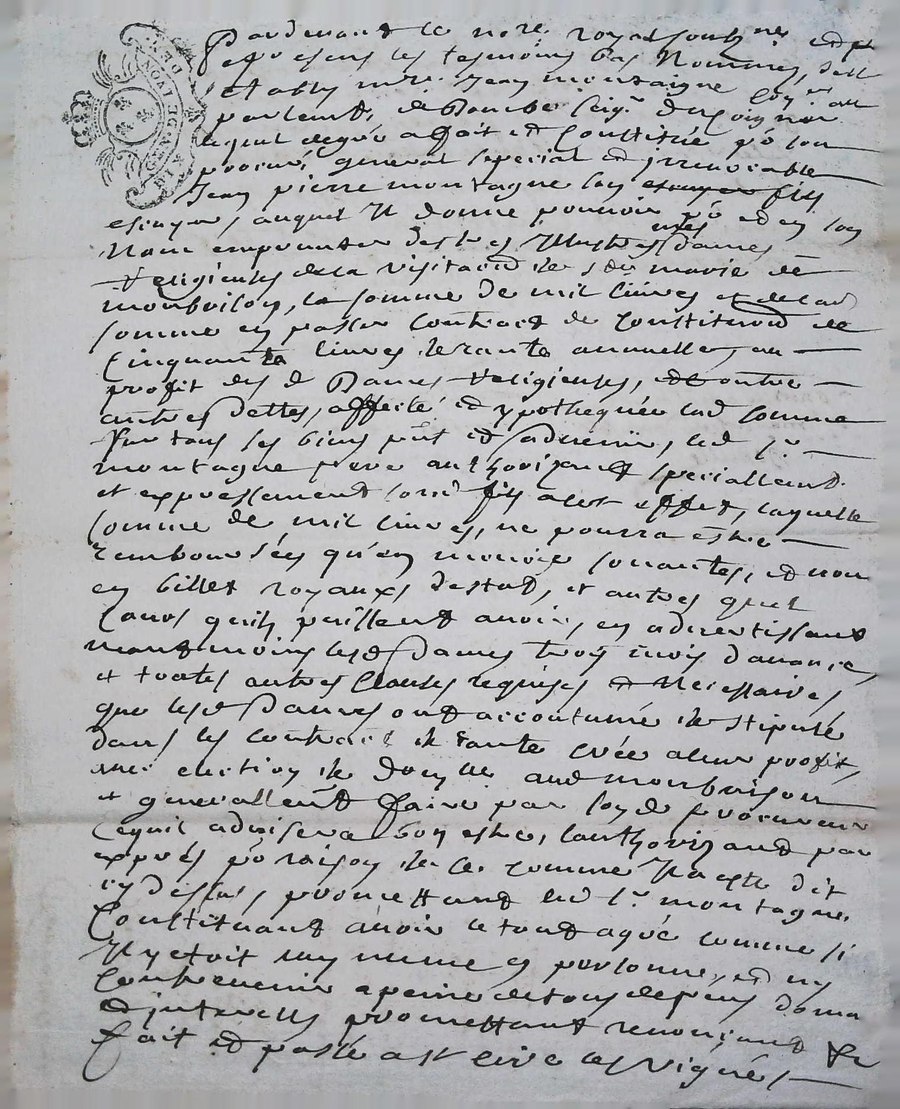 GEN. DE LYON
Pardevant le nore. royal soubne. et
presens les tesmoins bas Nommés, s'est
estably mre. Jean montaigne
parlement de Dombe seigr. de
lequel de gré a fait et Constitué po. son
procur. general special et irrevocable
Jean pierre montagne son fils
escuyer, auquel Il donne pouvoir po. et en son
Nom emprunter des tres Illustres Dames
Religieuses de la visitaon. de ste. marie de
monbrison, la somme de mil livres et de lad.
somme en passer Contract de Constitution de
Cinquante livres de rante annuelle, au
profit des d. Dames Religieuses, et outre
autres dettes, affecté et ypothequée lad. somme
sur tous ses biens pnt. et advenir, led. sr.
montagne pere authorizant speciallemt.
et expressement sond. fils a cet effet, laquelle
somme de mil livres, ne pourra estre
rembourcées qu'en monoie sonantes, et non
en billet royaux d'estat, et autres quel
Cours qu'ils puissent avoir, en advertissant
neantmoins lesd. Dames trois mois d'avance,
et toutes autres Clauses requises et Necessaires
que lesd. Dames ont accoutumé de stipulé
dans les contract de rante créé a leur profit,
avec election de domicille aud. monbrison
et generallemt. faire par son d. procureur
ce quil advisera bon estre, l'authorizant par
exprés po. raison de ce comme Il a esté dit
cy dessus, promettant led. sr. montagne
Constituant avoir le tout agré comme si
Il y etoit luy meme en personne, et n'y
Contrevenir a peine de tous depens doma
et interests promettant renonçant &c
fait et passé a st cire les vignes